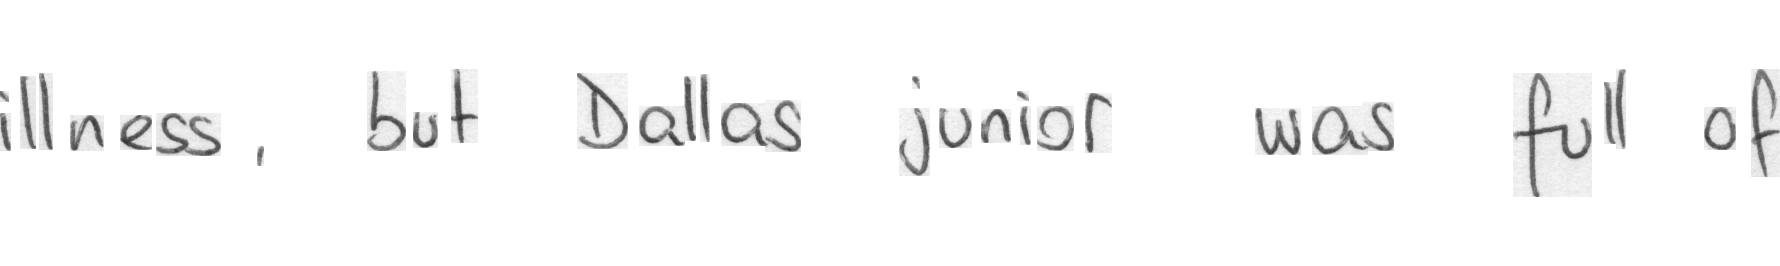 illness, but Dallas junior was full of